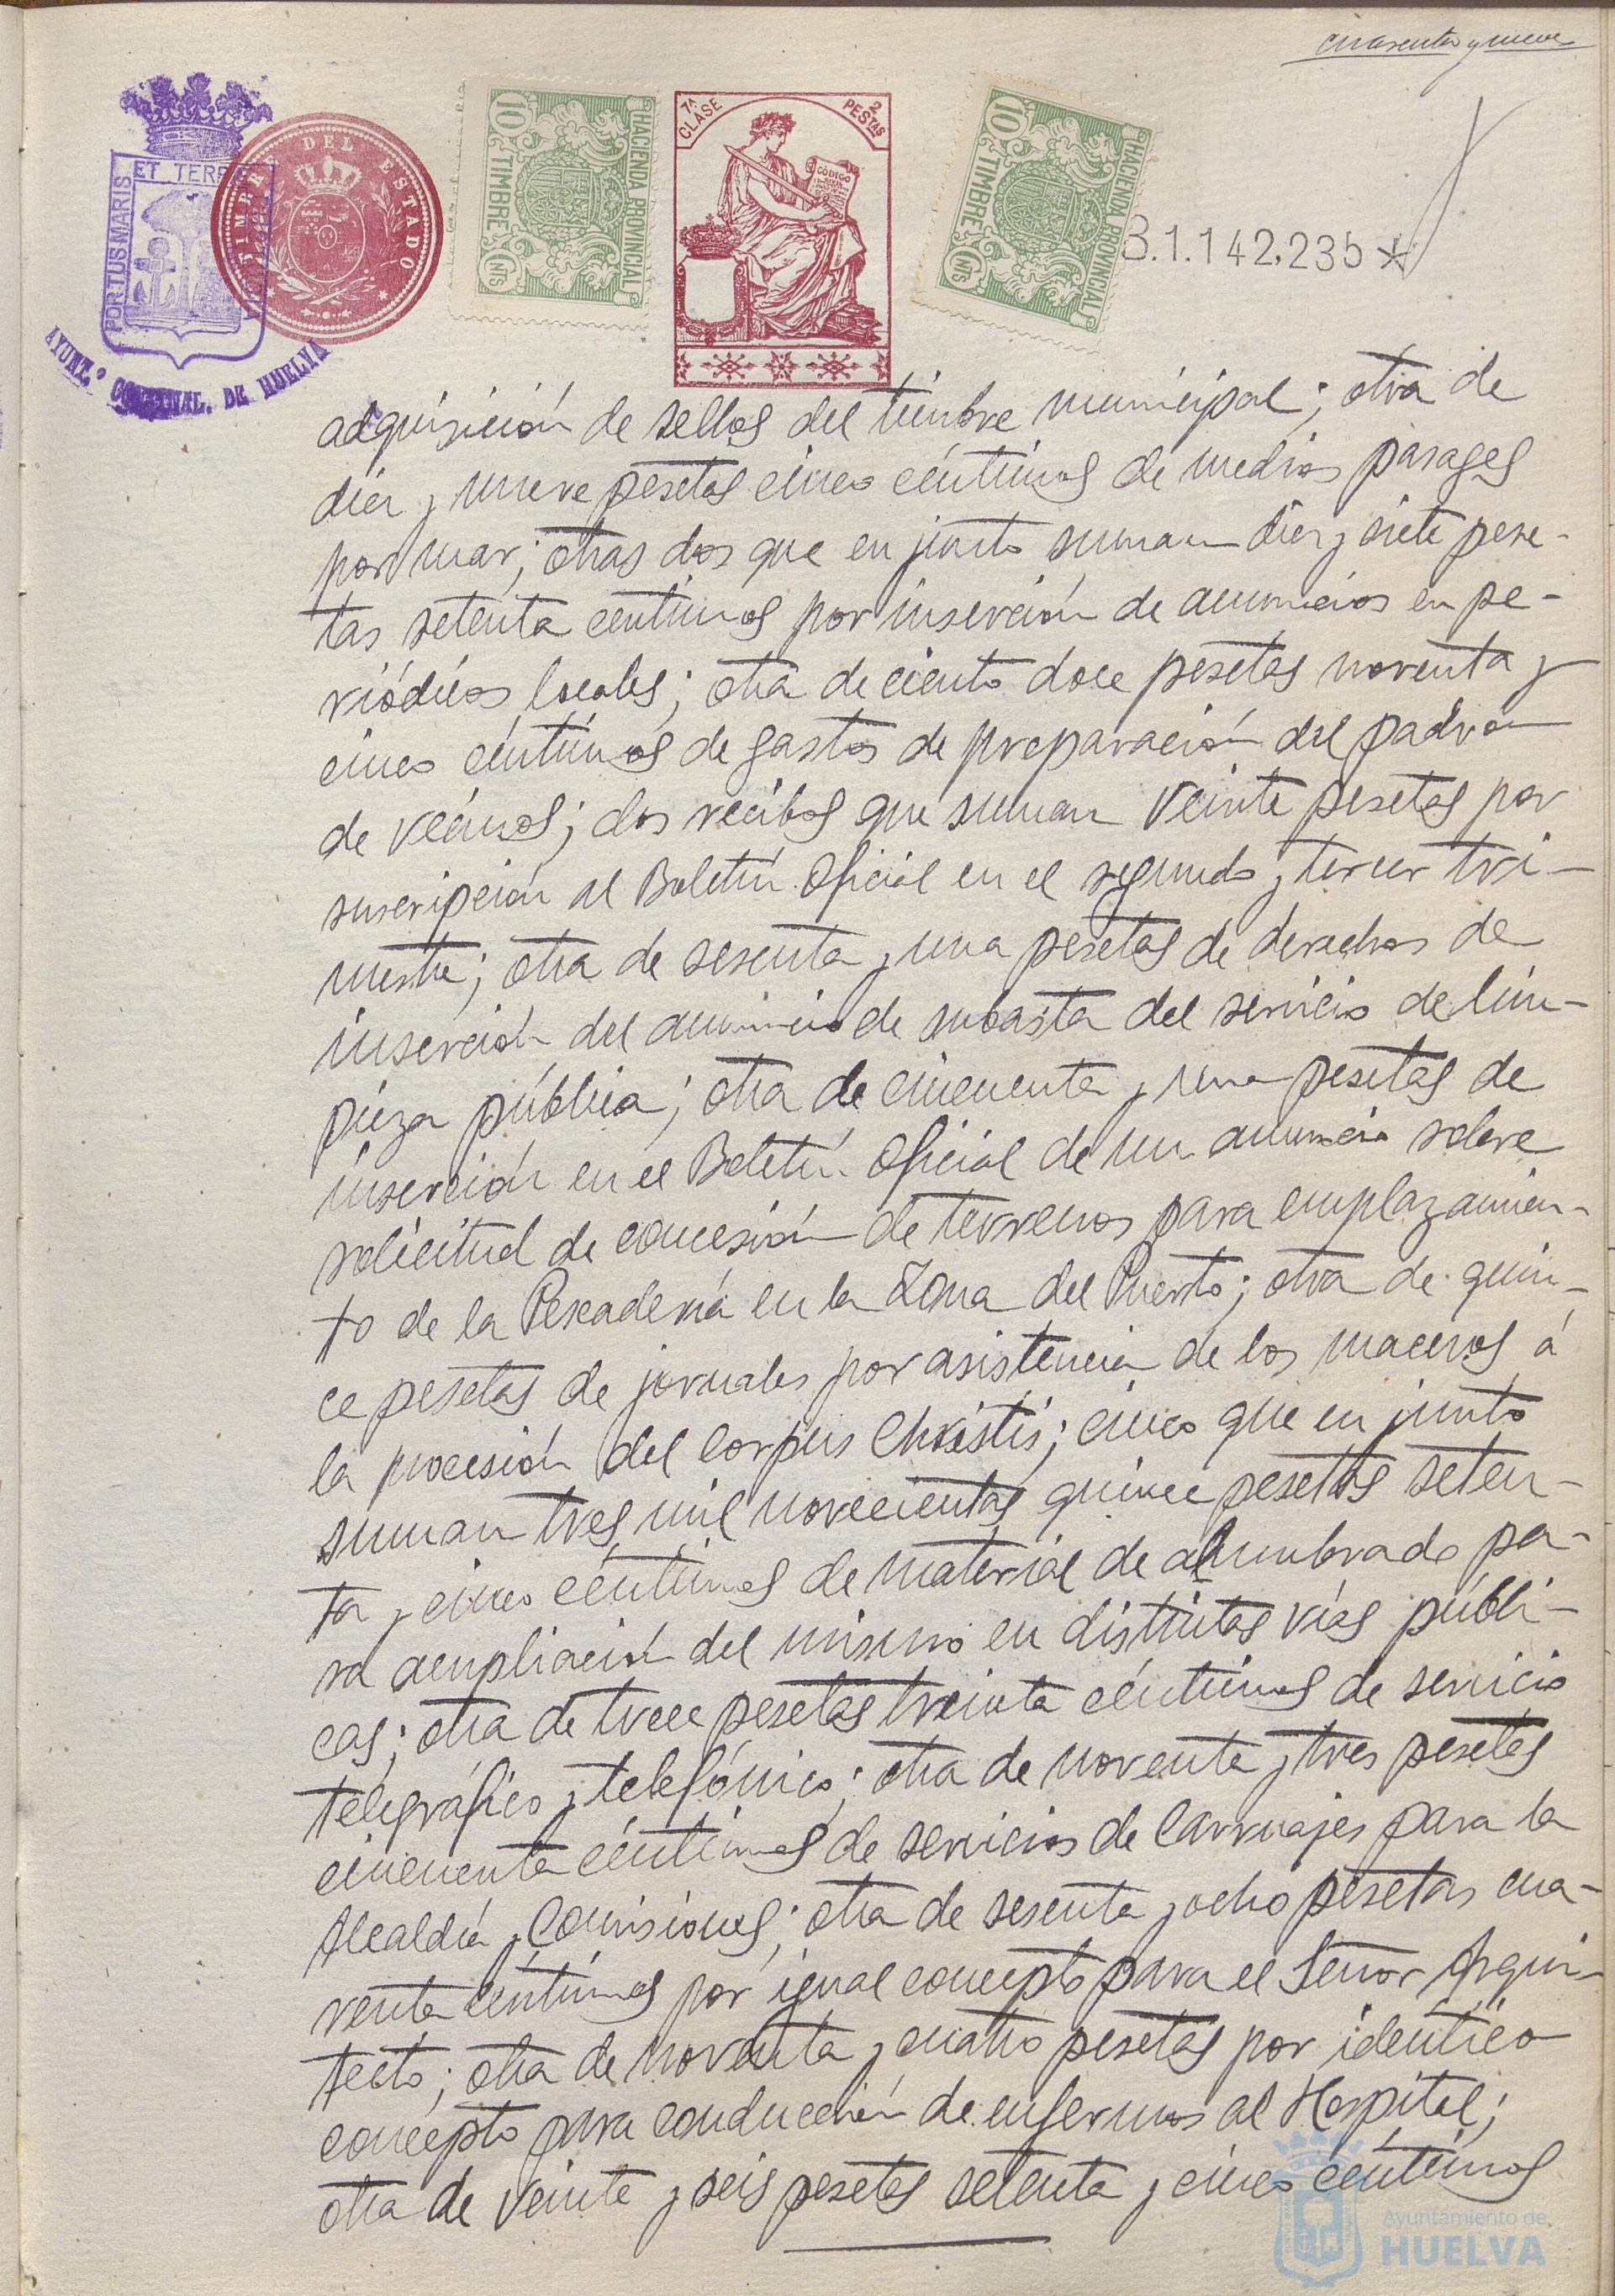 cuarenta y nueve
PORTUS MARIS ET TERR
AYUNT.º CONSTNAL. DE HUELVA
TIMBRE DEL ESTADO
10 CTS
TIMBRE
HACIENDA PROVINCIAL
7ª CLASE
2 PESTAS
CODIGO
10 CTS
TIMBRE
HACIENDA PROVINCIAL
B.1.142,235 *
adquisición de sellos del timbre municipal; otra de
diez y nueve pesetas cinco céntimos de medios pasages
por mar; otras dos que en junto suman diez y siete pese-
tas setenta céntimos por inserción de anuncios en pe-
riódicos locales; otra de ciento doce pesetas noventa y
cinco céntimos de gastos de preparación del padron
de vecinos; dos recibos que suman veinte pesetas por
suscripción al Boletín Oficial en el segundo y tercer tri-
mestre; otra de sesenta y una pesetas de derechos de
inserción del anuncio de subasta del servicio de lim-
pieza pública; otra de cincuenta y una pesetas de
inserción en el Boletín Oficial de un anuncio sobre
solicitud de concesión de terrenos para emplazamien-
to de la Pescadería en la Zona del Puerto; otra de quin-
ce pesetas de jornales por asistencia de los maceros á
la procesión del Corpus Christis; cinco que en junto
suman tres mil novecientas quince pesetas seten-
ta y cinco céntimos de material de alumbrado pa-
ra ampliación del mismo en distintas vías públi-
cas; otra de trece pesetas treinta céntimos de servicio
telegráfico y telefónico; otra de noventa y tres pesetas
cincuenta céntimos de servicios de carruajes para la
Alcaldía y Comisiones; otra de sesenta y ocho pesetas cua-
renta céntimos por igual concepto para el Señor Arqui-
tecto; otra de noventa y cuatro pesetas por identico
concepto para conducción de enfermos al Hospital;
otra de veinte y seis pesetas setenta y cinco céntimos
Ayuntamiento de
HUELVA